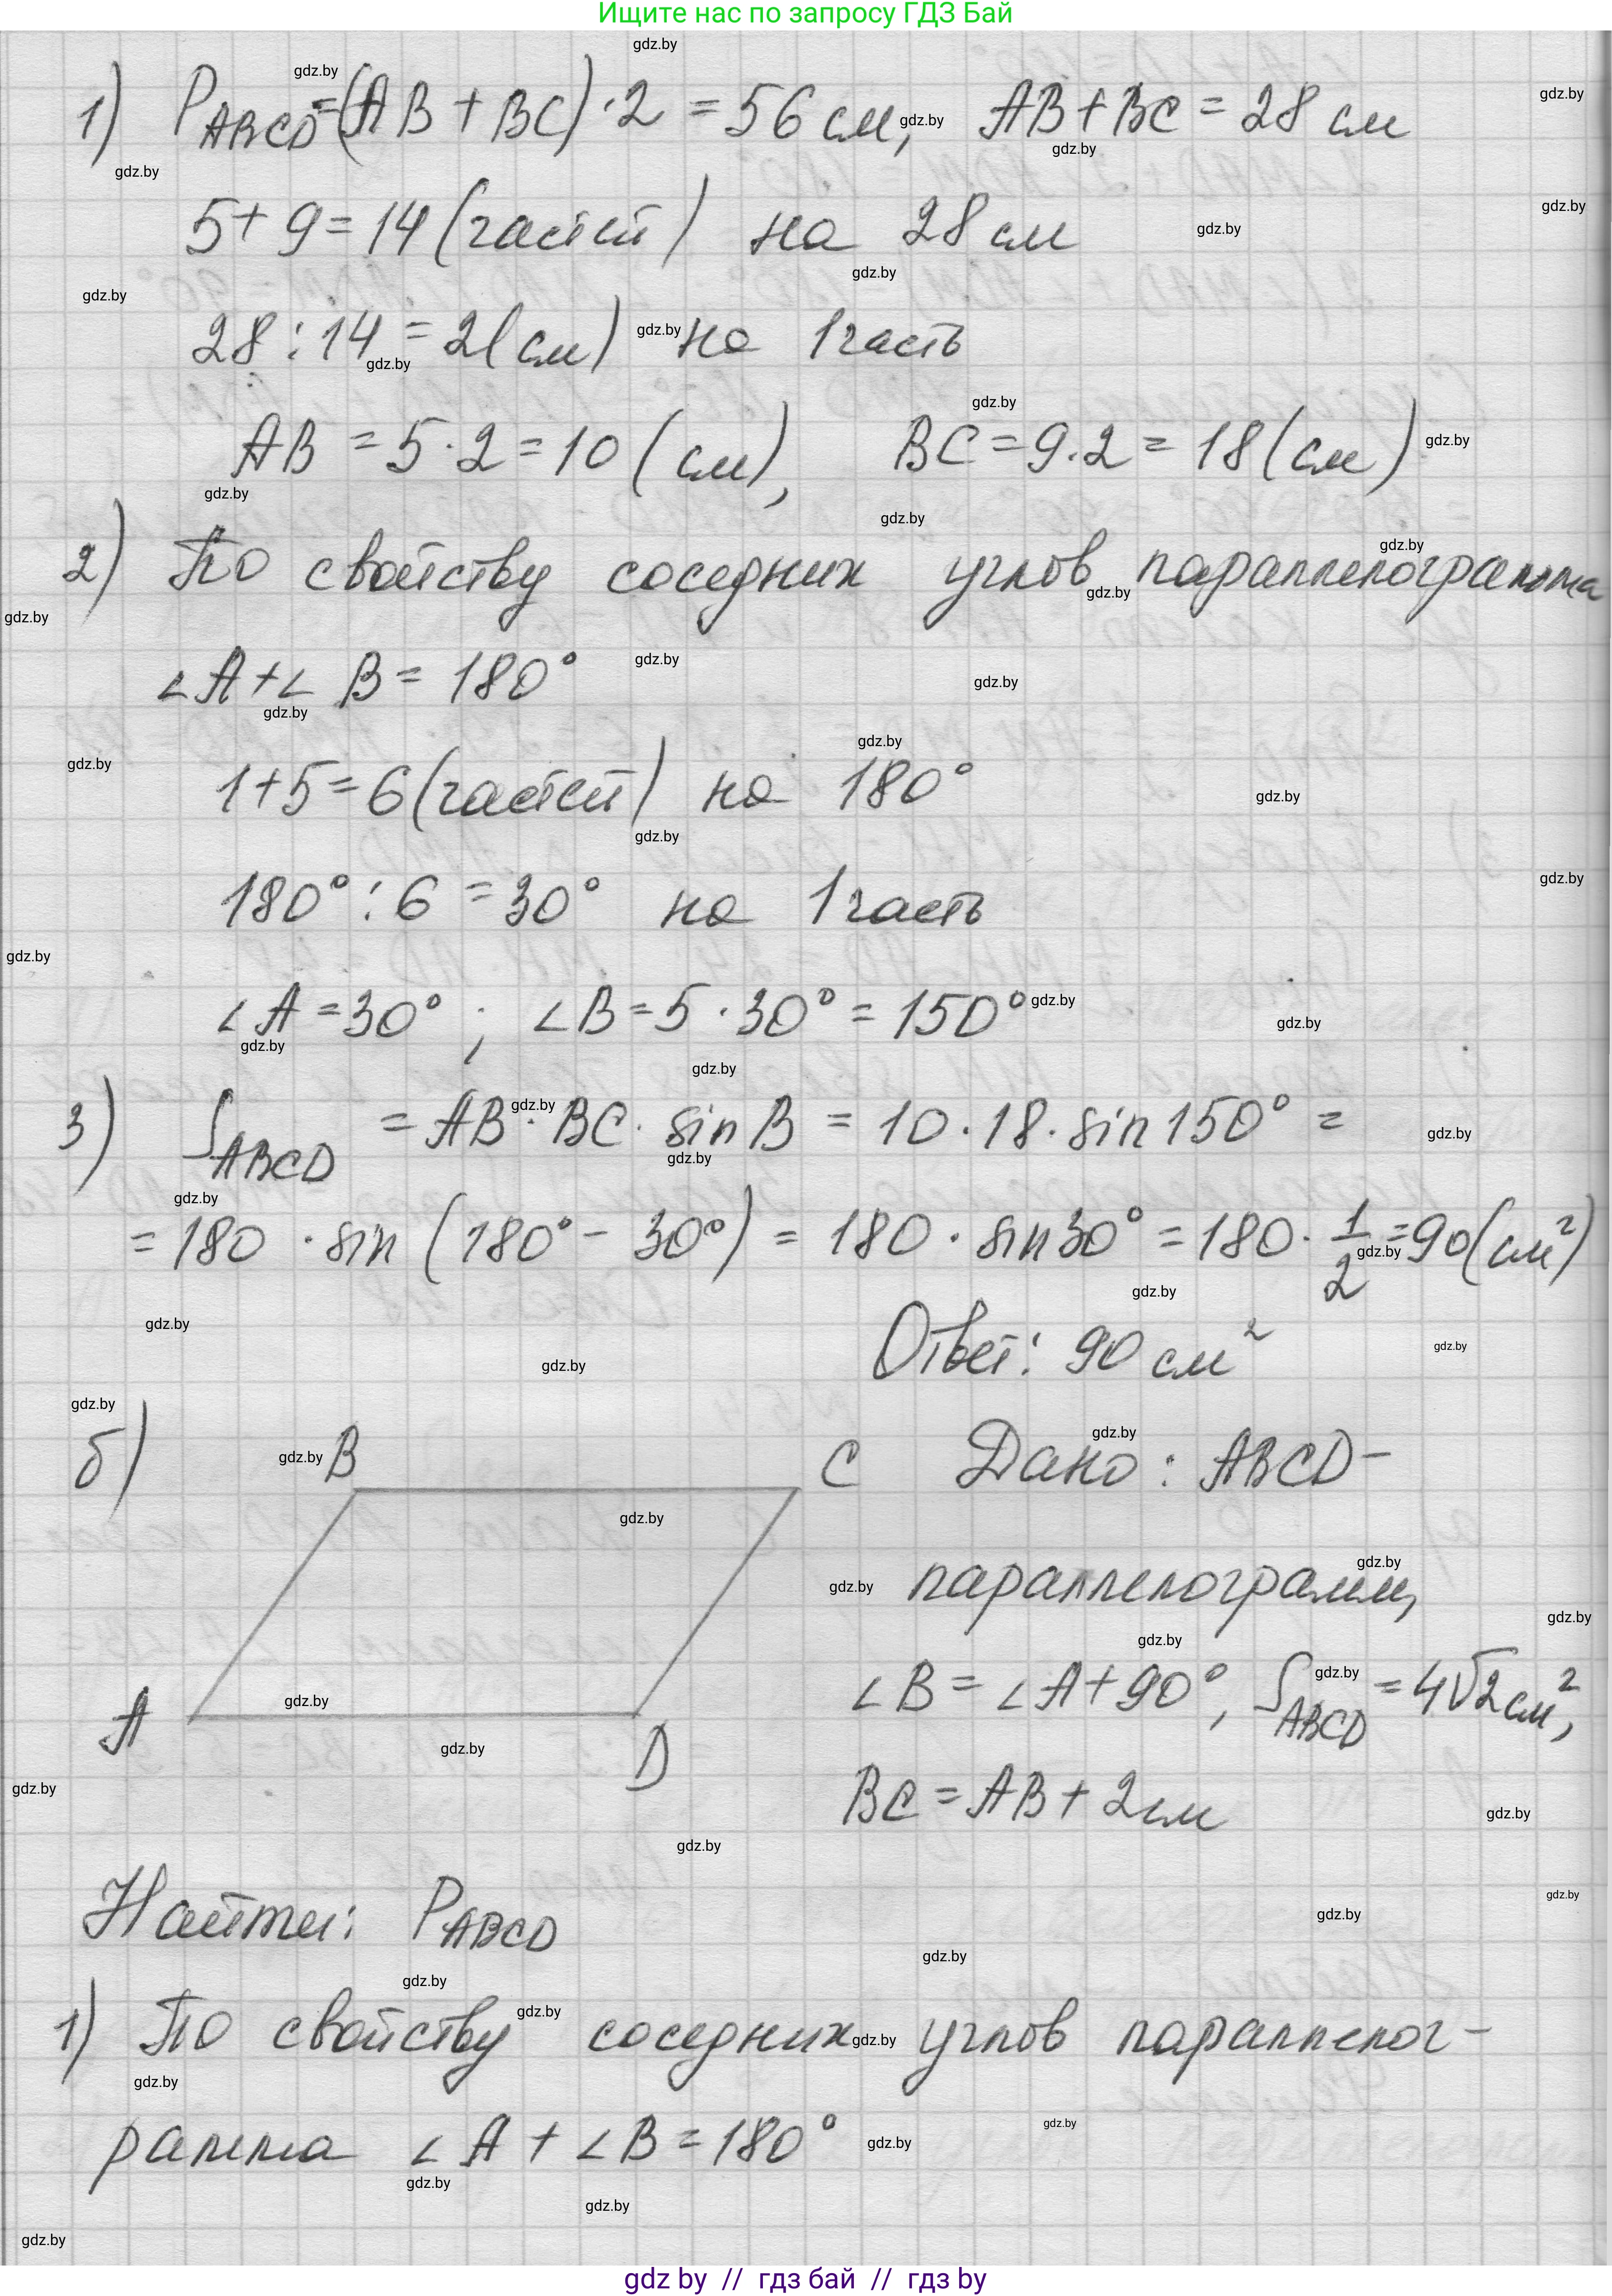 Ищите нас по запросу ГДЗ Бай
1) P ABCD = (AB + BC) · 2 = 56 см, AB + BC = 28 см
5 + 9 = 14 (частей) на 28 см
28 : 14 = 2 (см) на 1 часть
AB = 5 · 2 = 10 (см), BC = 9 · 2 = 18 (см)
2) По свойству соседних углов параллелограмма
∠A + ∠B = 180°
1 + 5 = 6 (частей) на 180°
180° : 6 = 30° на 1 часть
∠A = 30° ; ∠B = 5 · 30° = 150°
3) S ABCD = AB · BC · sin B = 10 · 18 · sin 150° =
= 180 · sin (180° - 30°) = 180 · sin 30° = 180 · 1/2 = 90 (см²)
Ответ: 90 см²
б) B C Дано : ABCD -
параллелограмм,
∠B = ∠A + 90°, S ABCD = 4√2 см²,
A D
BC = AB + 2 см
Найти: P ABCD
1) По свойству соседних углов параллелог-
рамма ∠A + ∠B = 180°
gdz by // гдз бай // гдз by